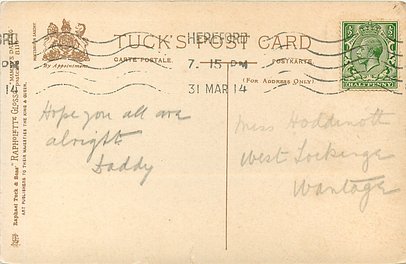 HEREFORD
7. 15 PM
31 MAR 14
TUCK'S POST CARD
CARTE POSTALE.
POSTKARTE.
(FOR ADDRESS ONLY.)
By Appointment.
HALFPENNY
Raphael Tuck & Sons'
ART PUBLISHERS TO THEIR MAJESTIES THE KING & QUEEN.
Hope you all are
alright
Daddy
Miss Hoddinott
West Lockinge
Wantage